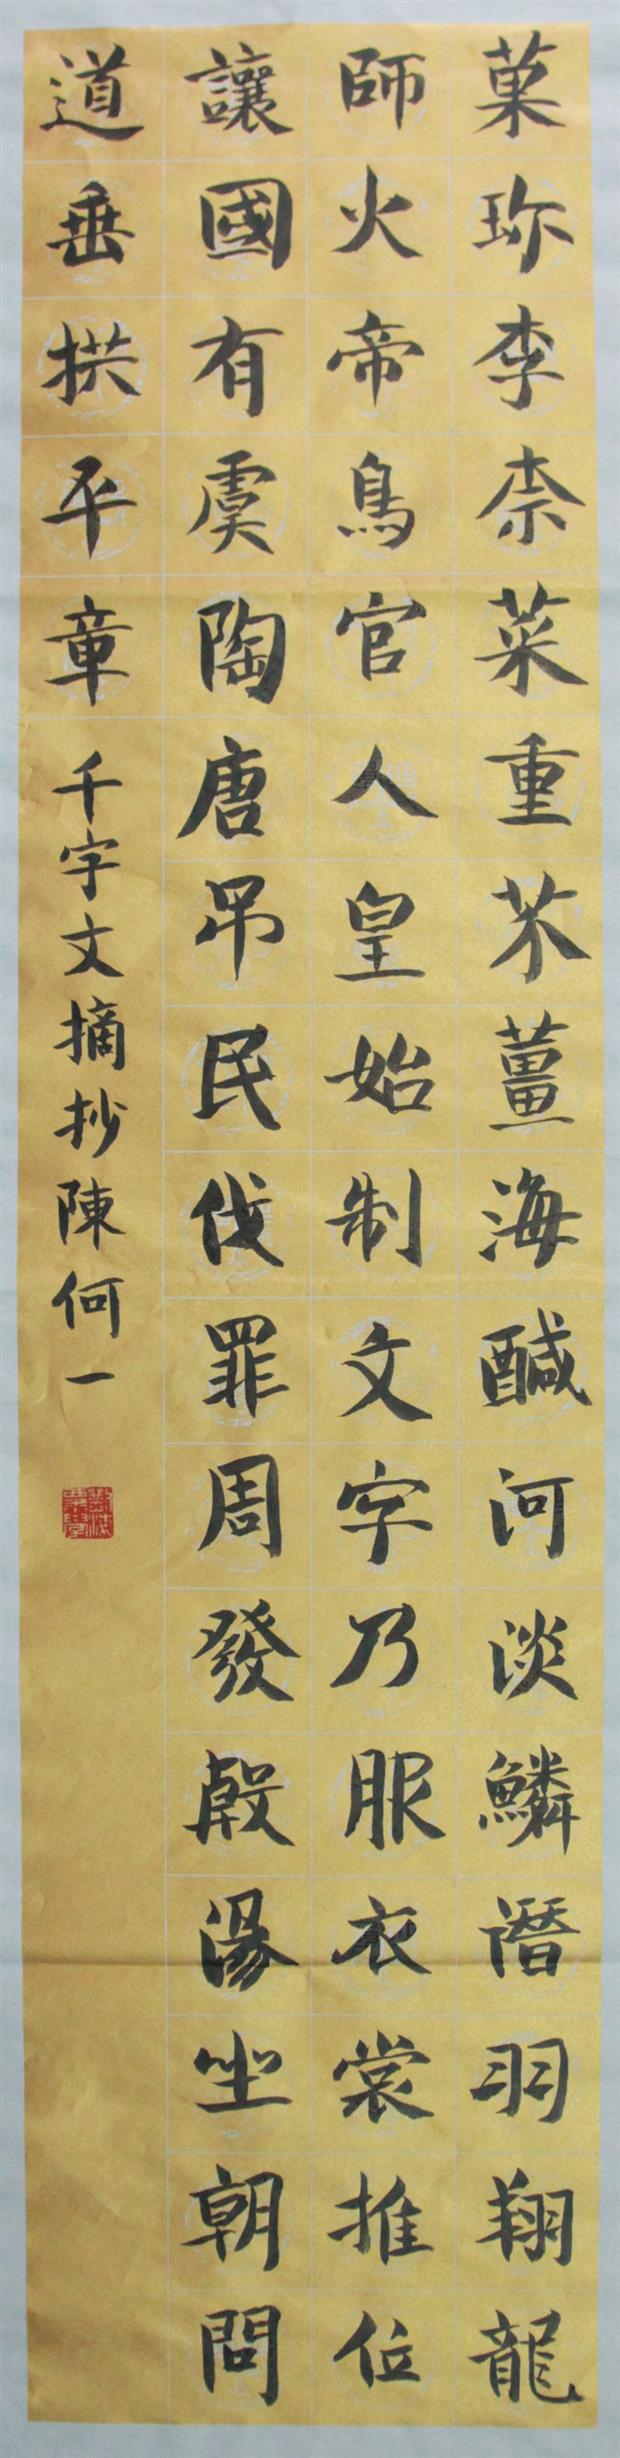 菓珎李柰菜重芥薑海醎河淡鱗潛羽翔龍
師火帝鳥官人皇始制文字乃服衣裳推位
讓國有虞陶唐吊民伐罪周發殷湯坐朝問
道垂拱平章 千字文摘抄陳何一